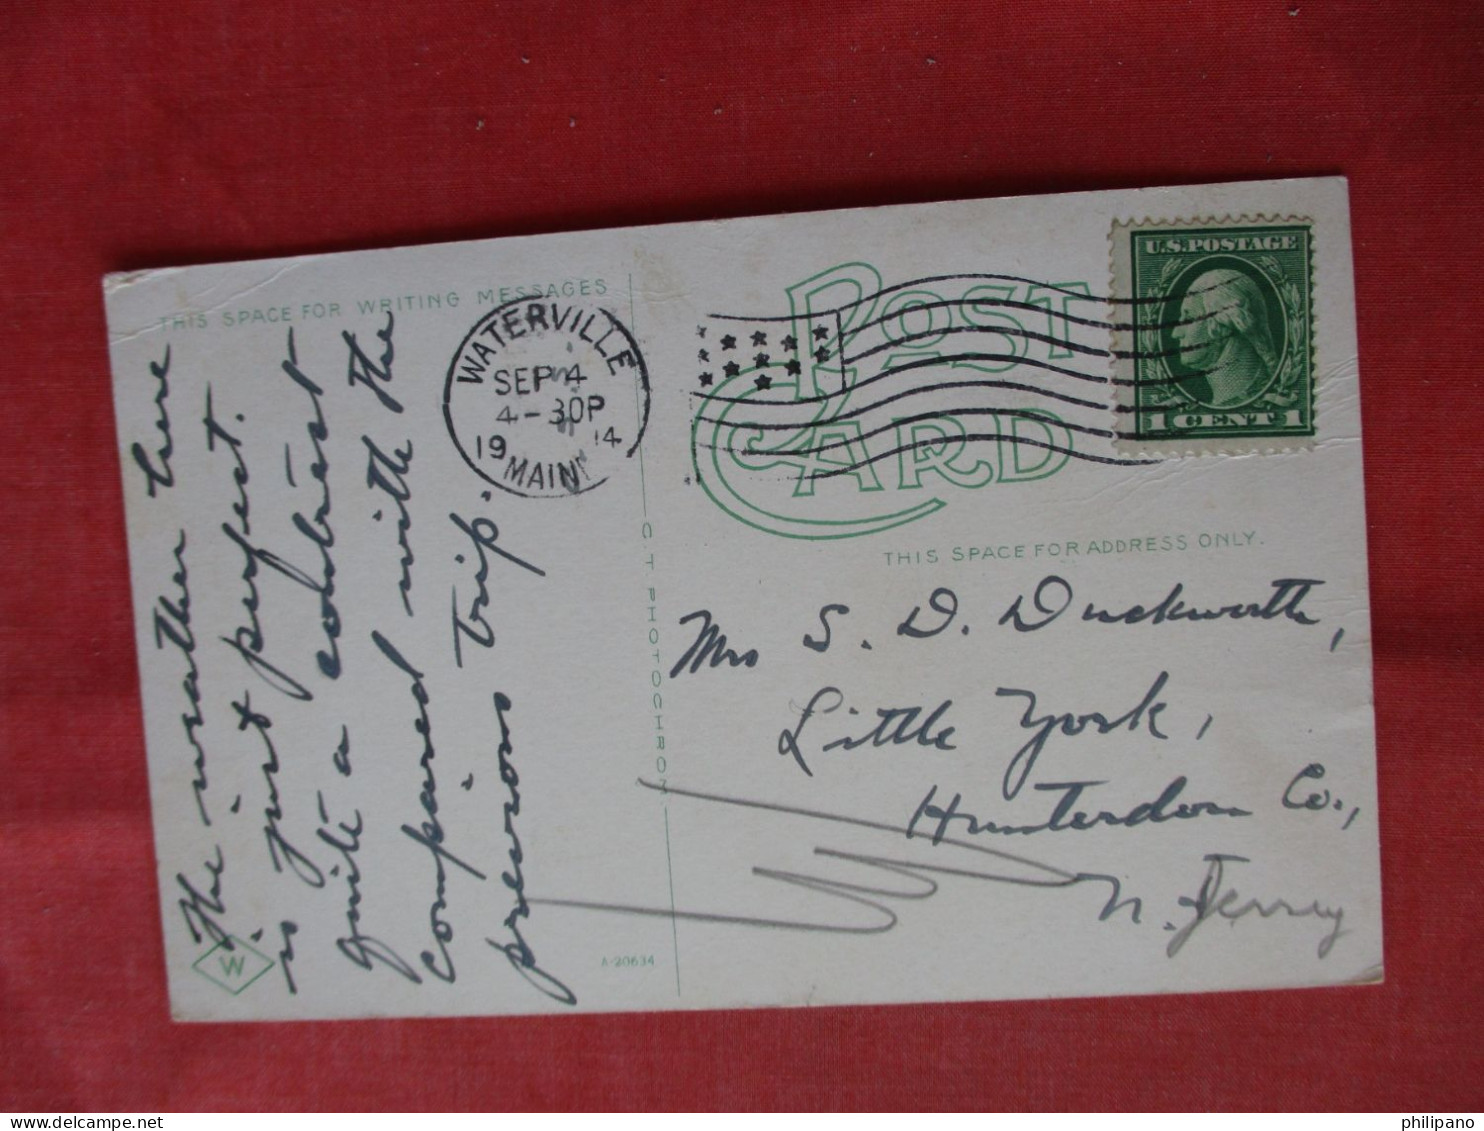 THIS SPACE FOR WRITING MESSAGES
The weather here
is just perfect.
quite a contrast
compared with the
previous trip.
W
A-20634
C. T. PHOTOCHROM
WATERVILLE
SEP 4
4-30P
19 14
MAINE
POST
CARD
U.S. POSTAGE
1 CENT 1
THIS SPACE FOR ADDRESS ONLY.
Mrs S. D. Duckworth,
Little York,
Hunterdon Co.,
N. Jersey
philipano